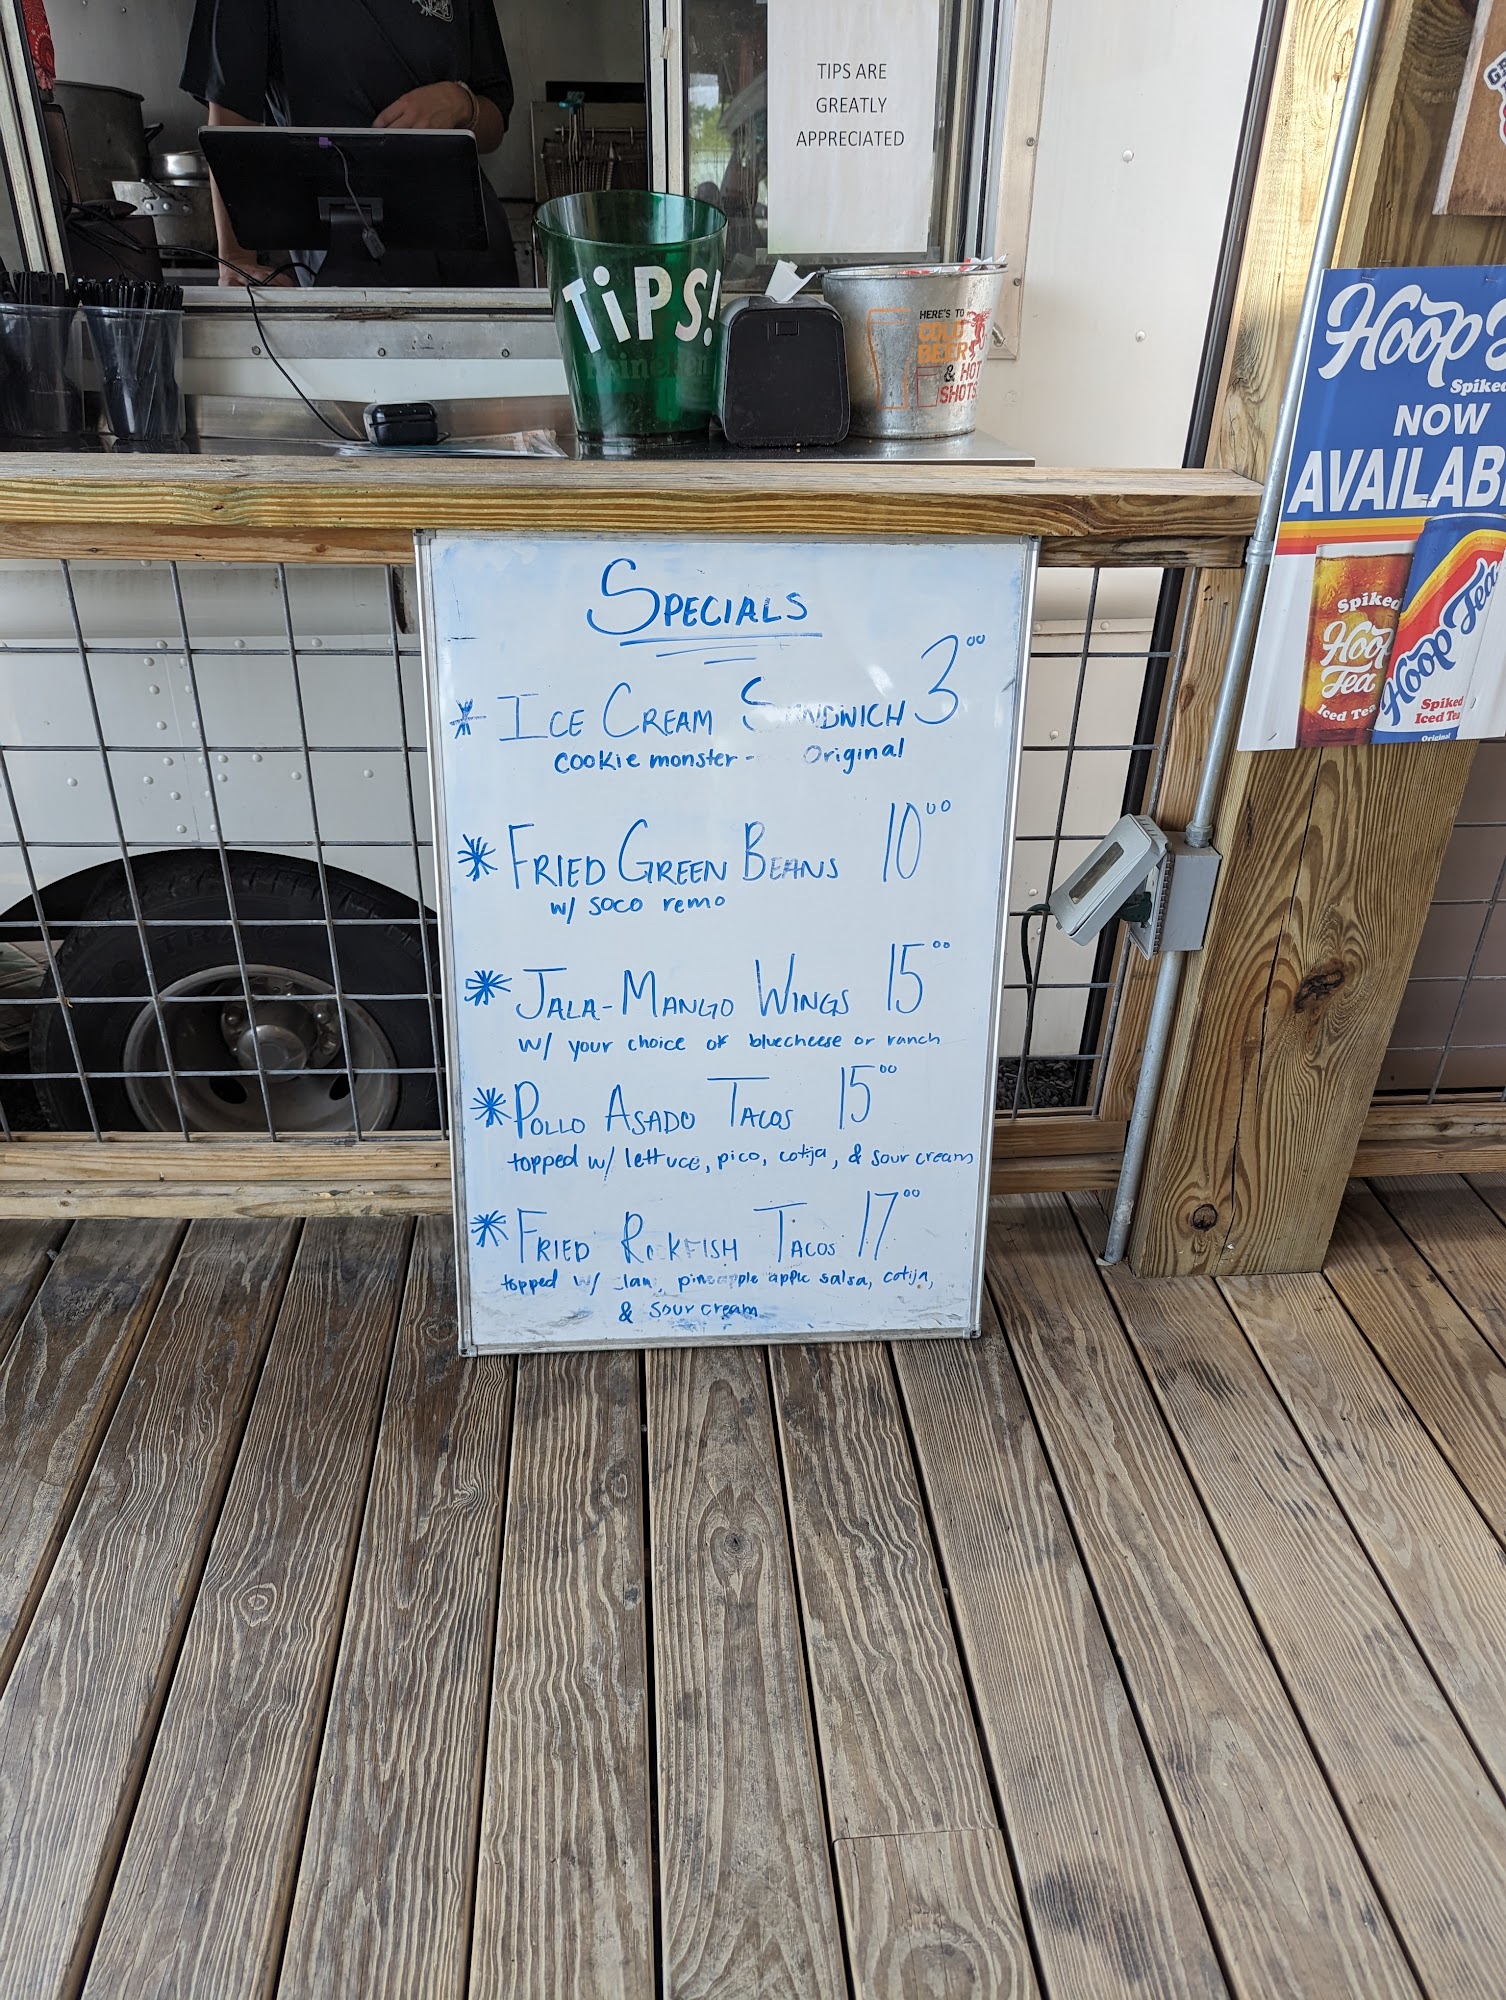 TIPS ARE
GREATLY
APPRECIATED
TiPS!
Heineken
HERE'S TO
COLD
BEER
& HOT
SHOTS
Hoop
Spiked
NOW
Spiked
Hoop
Tea
Iced Tea
Hoop Tea
Spiked
Iced Tea
Original
SPECIALS
* ICE CREAM SANDWICH 3.00
cookie monster - Original
* FRIED GREEN BEANS 10.00
w/ soco remo
* JALA-MANGO WINGS 15.00
w/ your choice of bluecheese or ranch
* POLLO ASADO TACOS 15.00
topped w/ lettuce, pico, cotija, & sour cream
* FRIED ROCKFISH TACOS 17.00
topped w/ pineapple apple salsa, cotija,
& sour cream